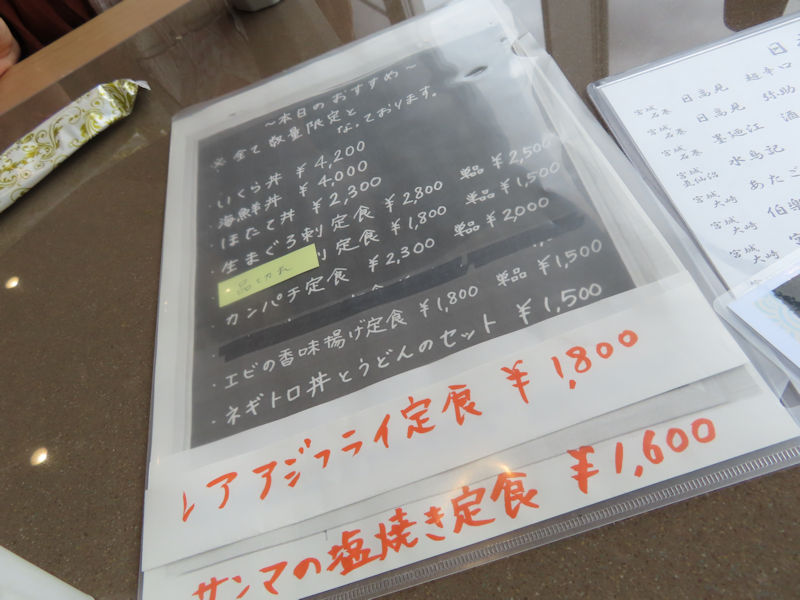 ～本日のおすすめ～
※全て数量限定と
なっております。
・いくら丼 ¥4,200
・海鮮丼 ¥4,000
・ほたて丼 ¥2,300
・生まぐろ刺定食 ¥2,800 単品 ¥2,500
品切れ 刺定食 ¥1,800 単品 ¥1,500
・カンパチ定食 ¥2,300 単品 ¥2,000
・エビの香味揚げ定食 ¥1,800 単品 ¥1,500
・ネギトロ丼とうどんのセット ¥1,500
レアアジフライ定食 ¥1,800
サンマの塩焼き定食 ¥1,600
日
宮城 石巻 日高見 超辛口
宮城 石巻 日高見 弥助
宮城 石巻 墨廼江 酒
宮城 気仙沼 水鳥記
宮城 大崎 あたご
宮城 大崎 伯楽
宮城 大崎